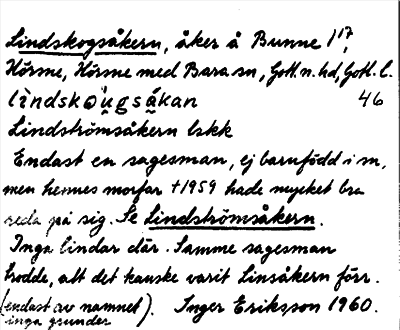 Lindskogsåkern, åker å Bunne 1¹⁷,
Hörsne, Hörsne med Bara sn, Gotl. n. hd, Gotl. l.
lìndskǫu̯gsákan 46
Lindströmsåkern bskk
Endast en sagesman, ej barnfödd i sn,
men hennes morfar †1959 hade mycket bra
reda på sig. Se Lindströmsåkern.
Inga lindar där. Samme sagesman
trodde, att det kanske varit Linsåkern förr.
(endast av namnet). Inger Eriksson 1960.
inga grunder